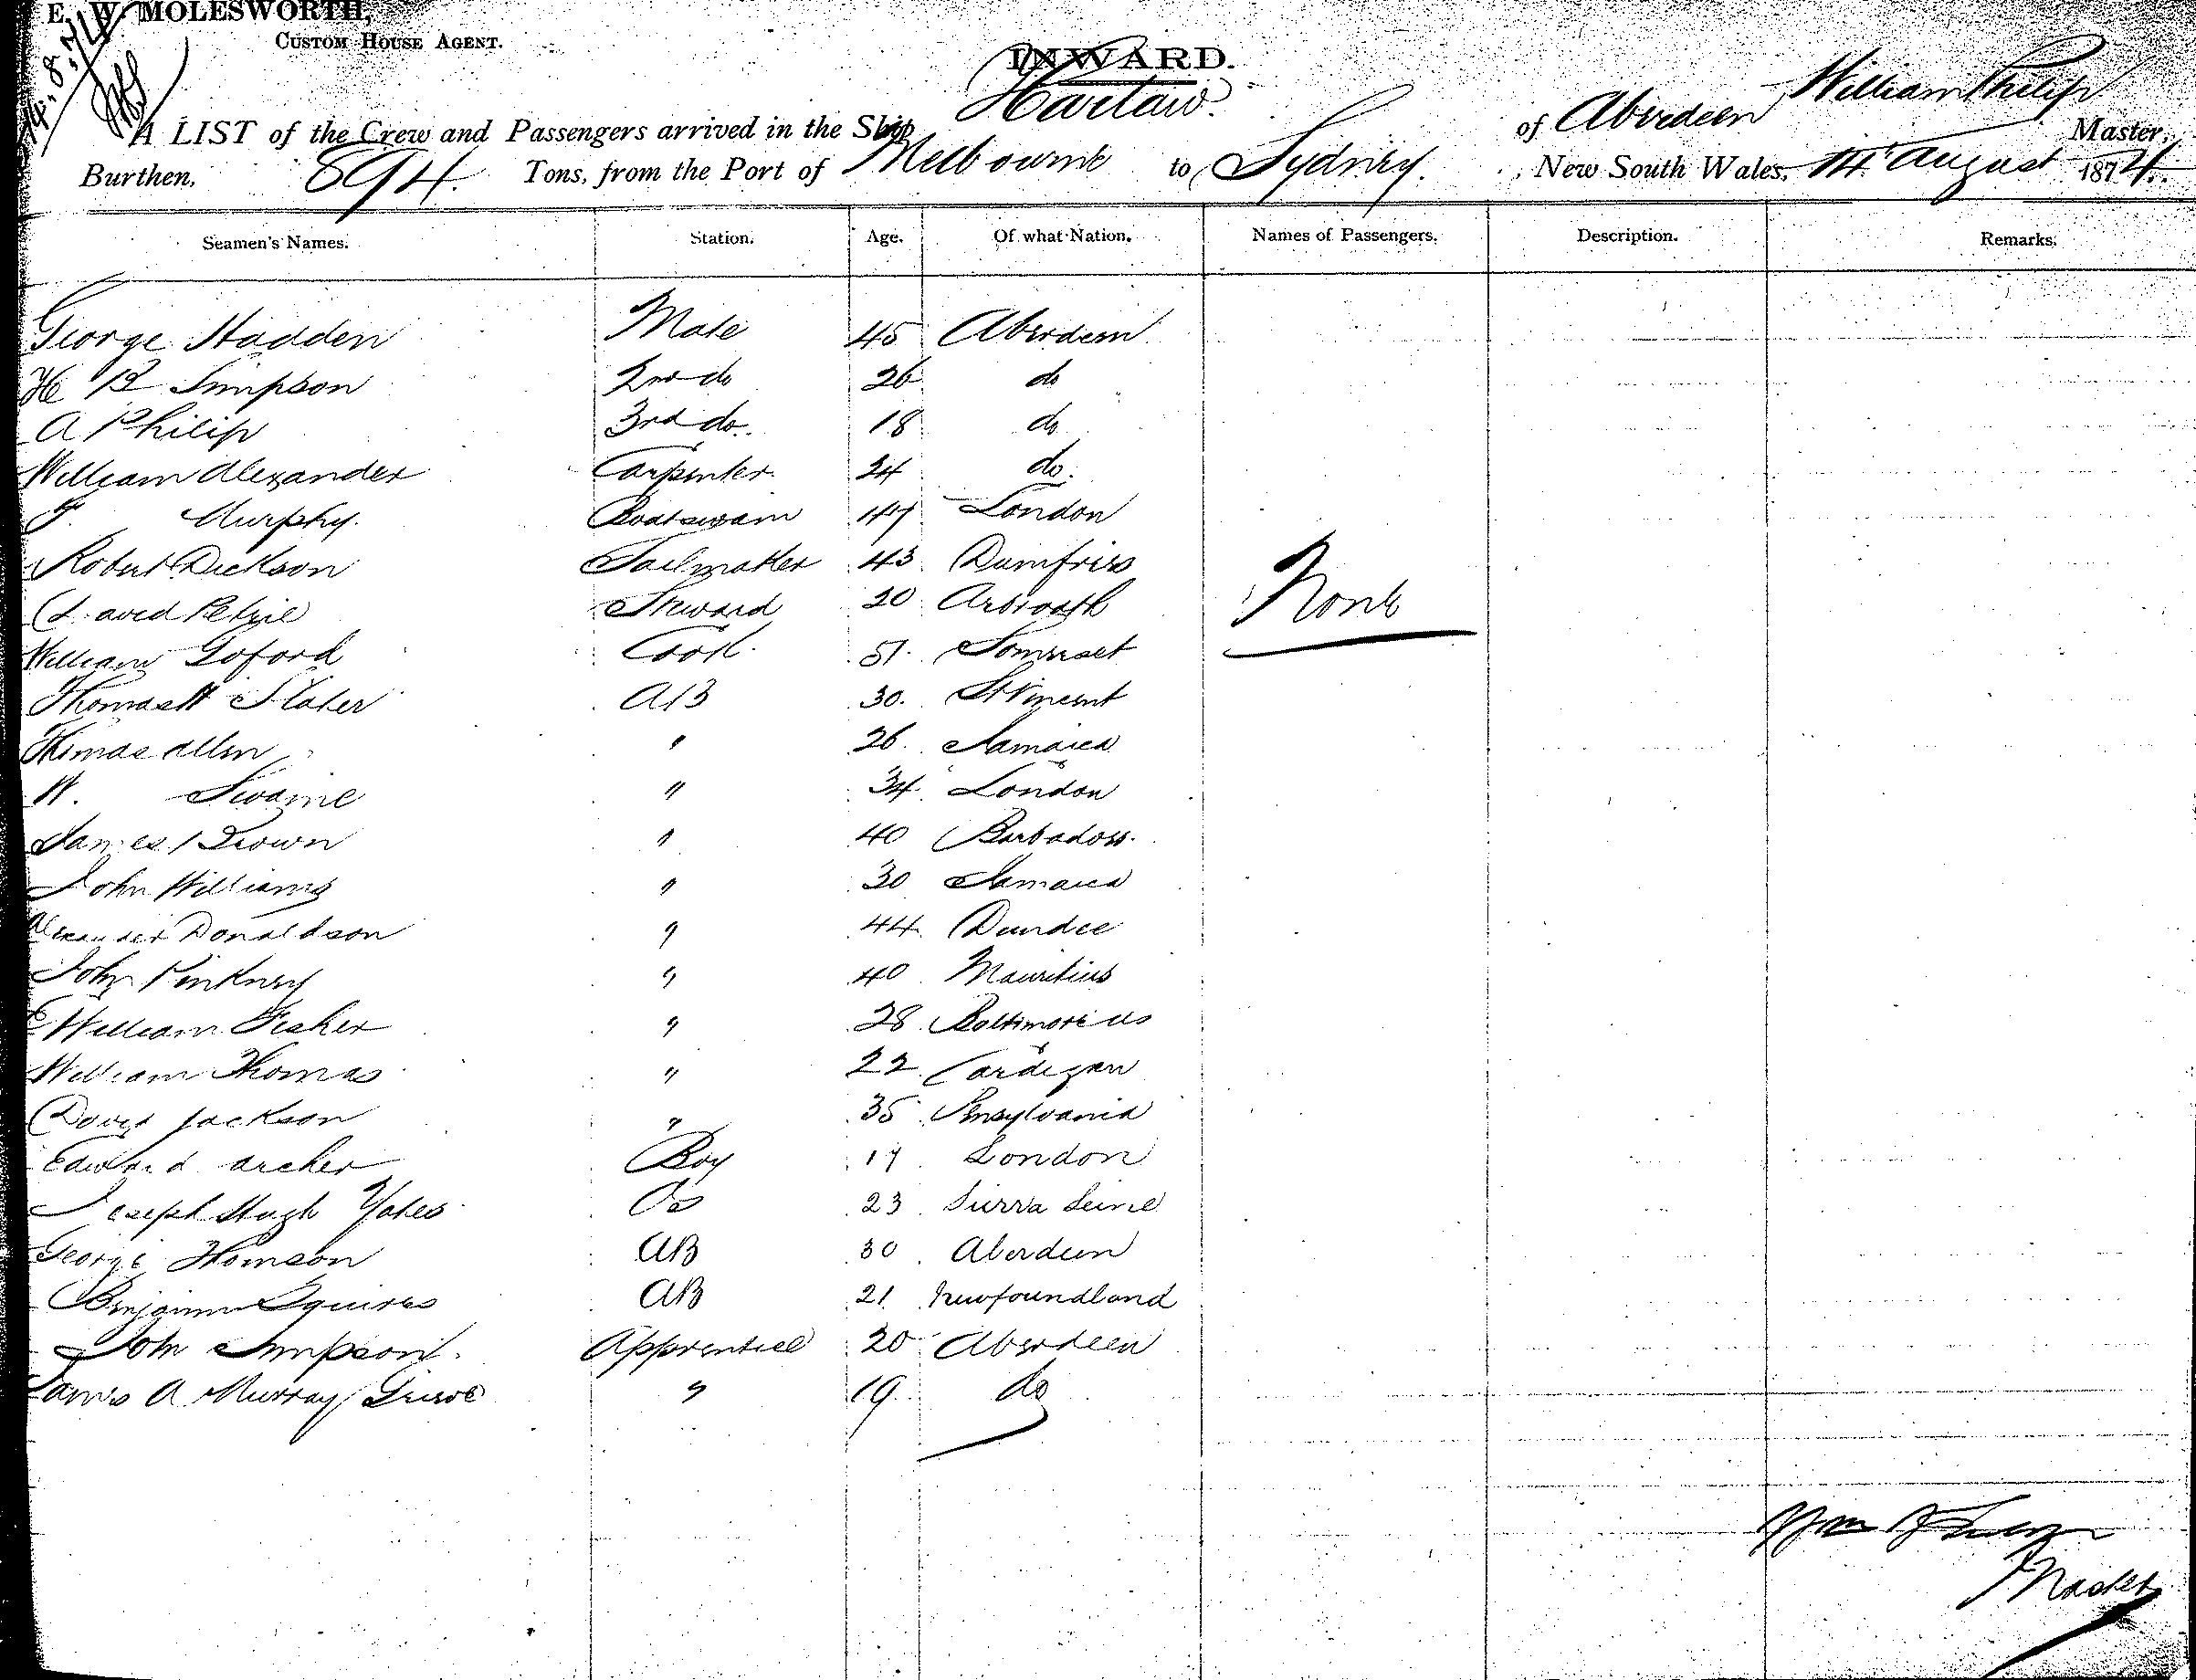 E. W. MOLESWORTH,
CUSTOM HOUSE AGENT.
14.8.74
INWARD.
A LIST of the Crew and Passengers arrived in the Ship Harlaw of Aberdeen William Philip Master,
Burthen, 894 Tons, from the Port of Melbourne to Sydney, New South Wales, 14th August 1874
Seamen's Names. Station. Age. Of what Nation. Names of Passengers. Description. Remarks.
George Hadden Mate 45 Aberdeen
H B Simpson 2nd do 26 do
A Philip 3rd do. 18 do
William Alexander Carpenter 24 do.
Murphy. Boatswain 47 London
Robert Dickson Sailmaker 43 Dumfries
David Petrie Steward 20 Arbroath
None
William Goford Cook 51 Somerset
Thomas H Slater AB 30. St Vincent
Thomas Allen " 26. Jamaica
W. Swaine " 34 London
James Brown " 40 Barbadoss.
John Williams " 30 Jamaica
Alexander Donaldson " 44 Dundee
John Pinkney " 40 Mauritius
William Fisher " 28 Baltimore us
William Thomas " 22 Cardigan
David Jackson " 35 Pensylvania
Edward Archer Boy 17 London
Joseph Hugh Yates Os 23 Sierra Leine
George Thomson AB 30 Aberdeen
Benjamin Squires AB 21 Newfoundland
John Simpson. Apprentice 20 Aberdeen
James A Murray " 19 do
Wm Philip
Master